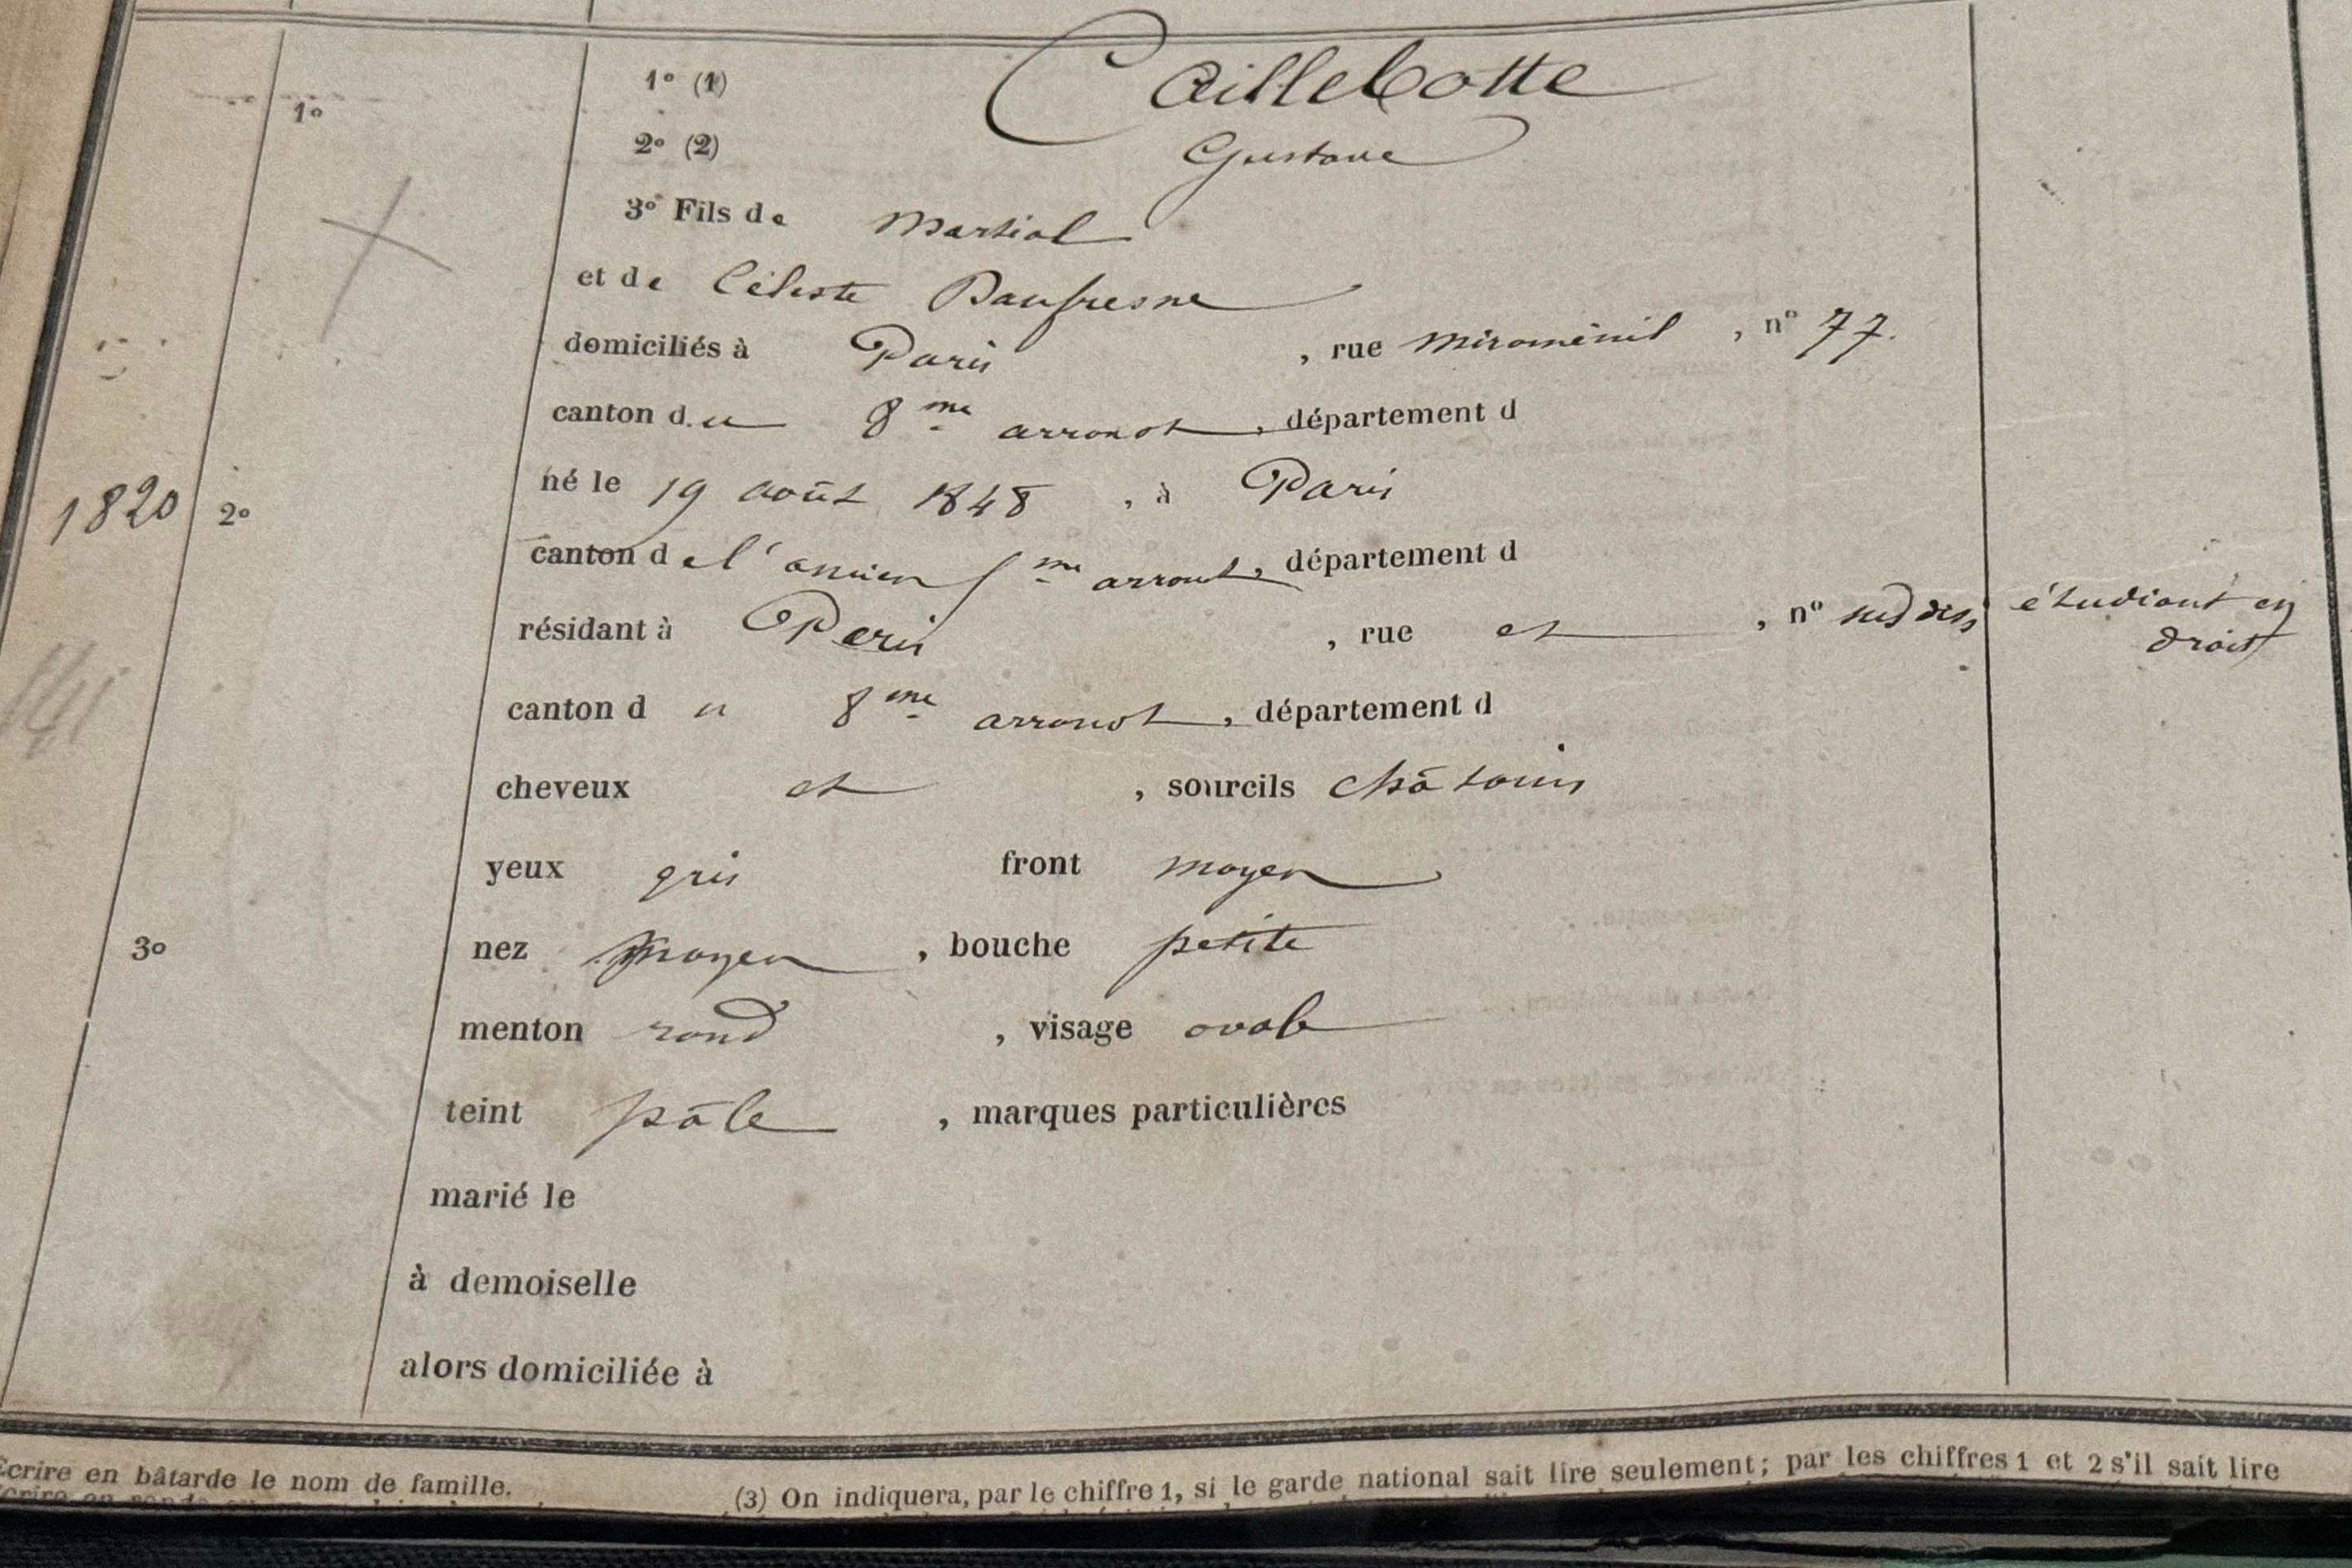 1º (1) Caillebotte
1º
2º (2) Gustave
3º Fils de Martial
et de Céleste Daufresne
domiciliés à Paris , rue Miroménil , nº 77.
canton du 8me arrondt , département d
né le 19 août 1848 , à Paris
1820 2º
canton de l'ancien 5me arrondt , département d
résidant à Paris , rue et , nº susdits étudiant en
droit
canton du 8me arrondt , département d
141
cheveux et , sourcils châtains
yeux gris front moyen
3º nez moyen , bouche petite
menton rond , visage ovale
teint pâle , marques particulières
marié le
à demoiselle
alors domiciliée à
Écrire en bâtarde le nom de famille.
(3) On indiquera, par le chiffre 1, si le garde national sait lire seulement ; par les chiffres 1 et 2 s'il sait lire